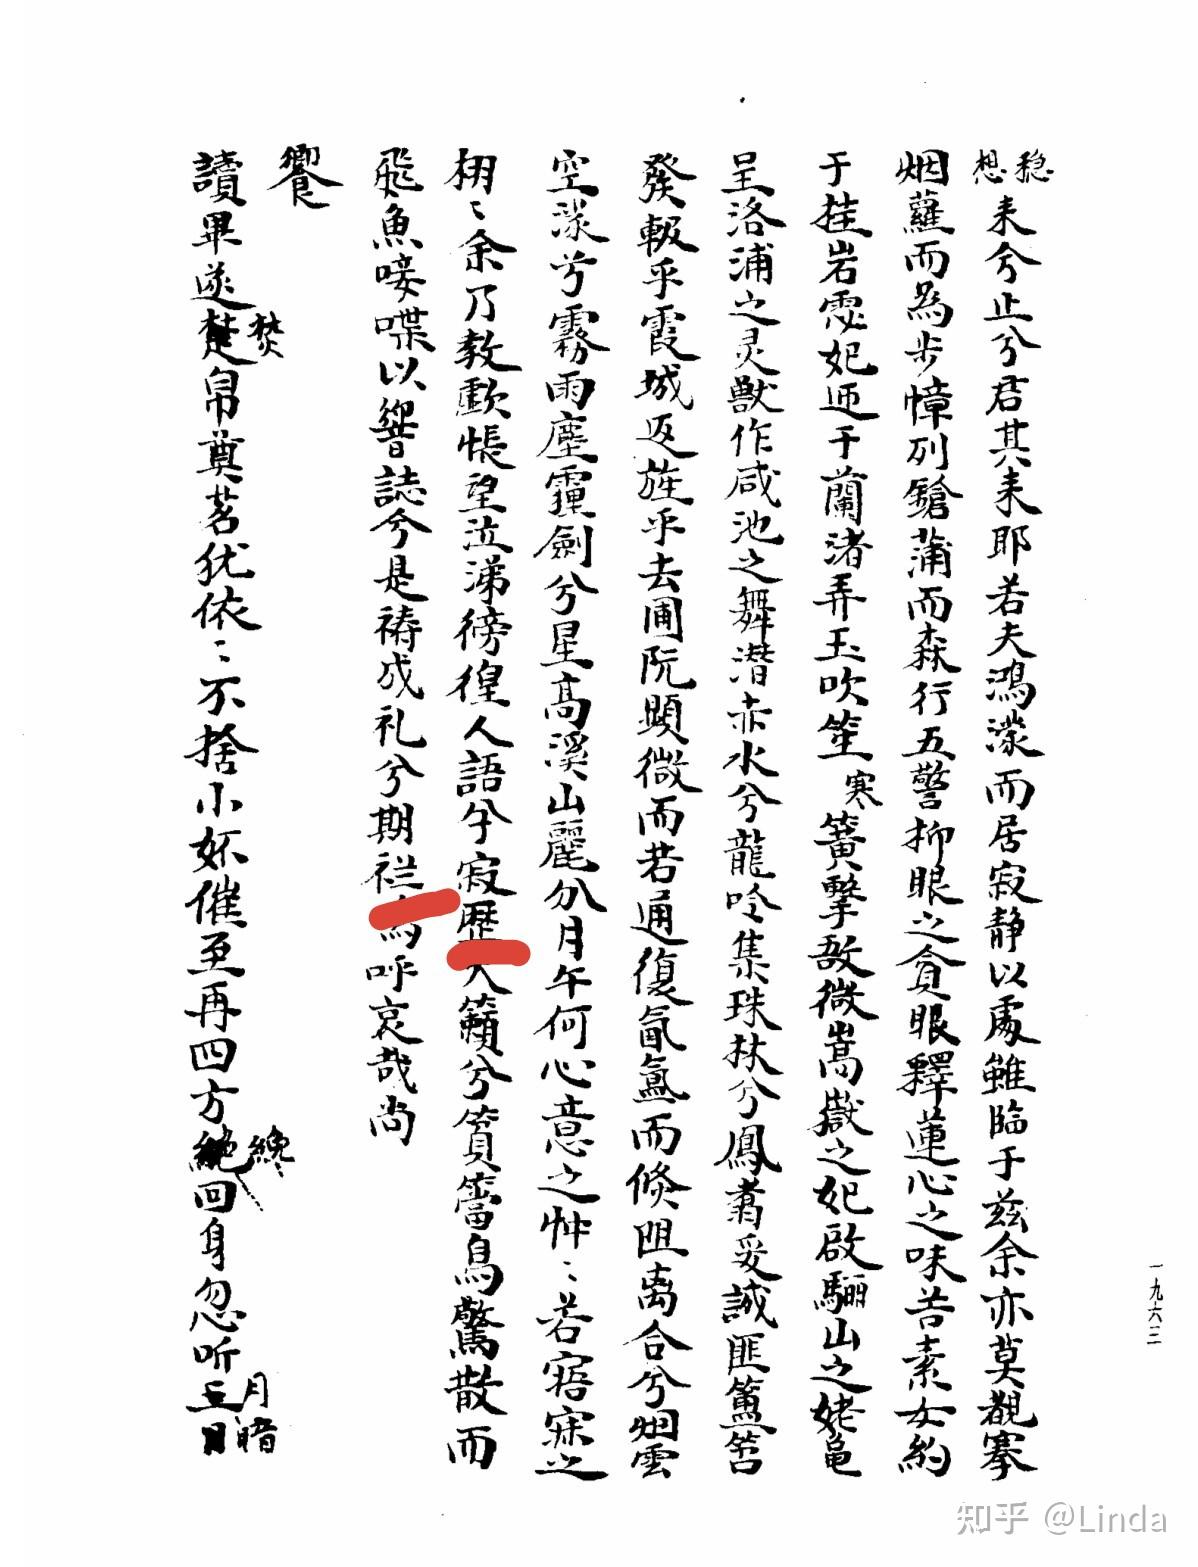 稳想来兮止兮君其来耶若夫鴻濛而居寂静以處雖臨于兹余亦莫覩搴
烟蘿而為步幛列鎗蒲而森行五警抑眼之貪眼釋蓮心之味苦素女約
于挂岩宓妃迊于蘭渚弄玉吹笙寒簧擊敔微嵩嶽之妃啟驪山之姥龟
呈洛浦之灵獸作咸池之舞潜赤水兮龍吟集珠林兮鳳翥爰誠匪簠筥
發軔乎霞城返旌乎去圃阮顕微而若通復氤氲而倏阻离合兮烟雲
空濛兮霧雨塵霾劍兮星高溪山麗兮月午何心意之忡〻若寤寐之
栩〻余乃欷歔悵望泣涕徬徨人語兮寂歴籟兮篔簹鳥驚散而
飛魚唼喋以響誌兮是祷成礼兮期呼哀哉尚
饗
讀畢遂焚帛奠茗犹依〻不捨小婢催至再四方纔回身忽听
月暗
一九六三
知乎 @Linda